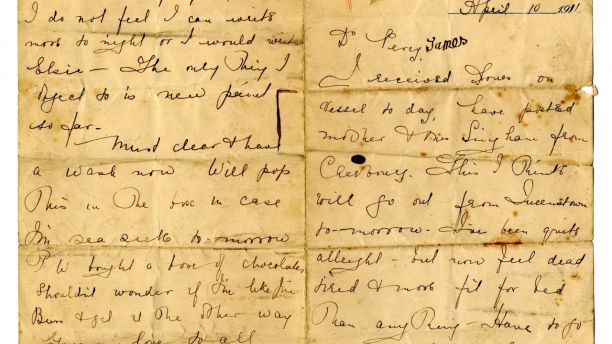 April 10 1911
Dr Percy James
I received yours on
vessel to day, have posted
mother & Mrs Bingham from
Cherbourg. This I think
will go out from Queenstown
to-morrow. I've been quite
allright - but now feel dead
tired & more fit for bed
than anything - Have to go
I do not feel I can write
more to night or I would write
Elsie - The only thing I
object to is new paint
so far -
Must clear & have
a wash now Will pop
this in the box in case
I'm sea sick to-morrow
P W bought a box of chocolates
Shouldn't wonder if I'm like
& get it the other way
love to all